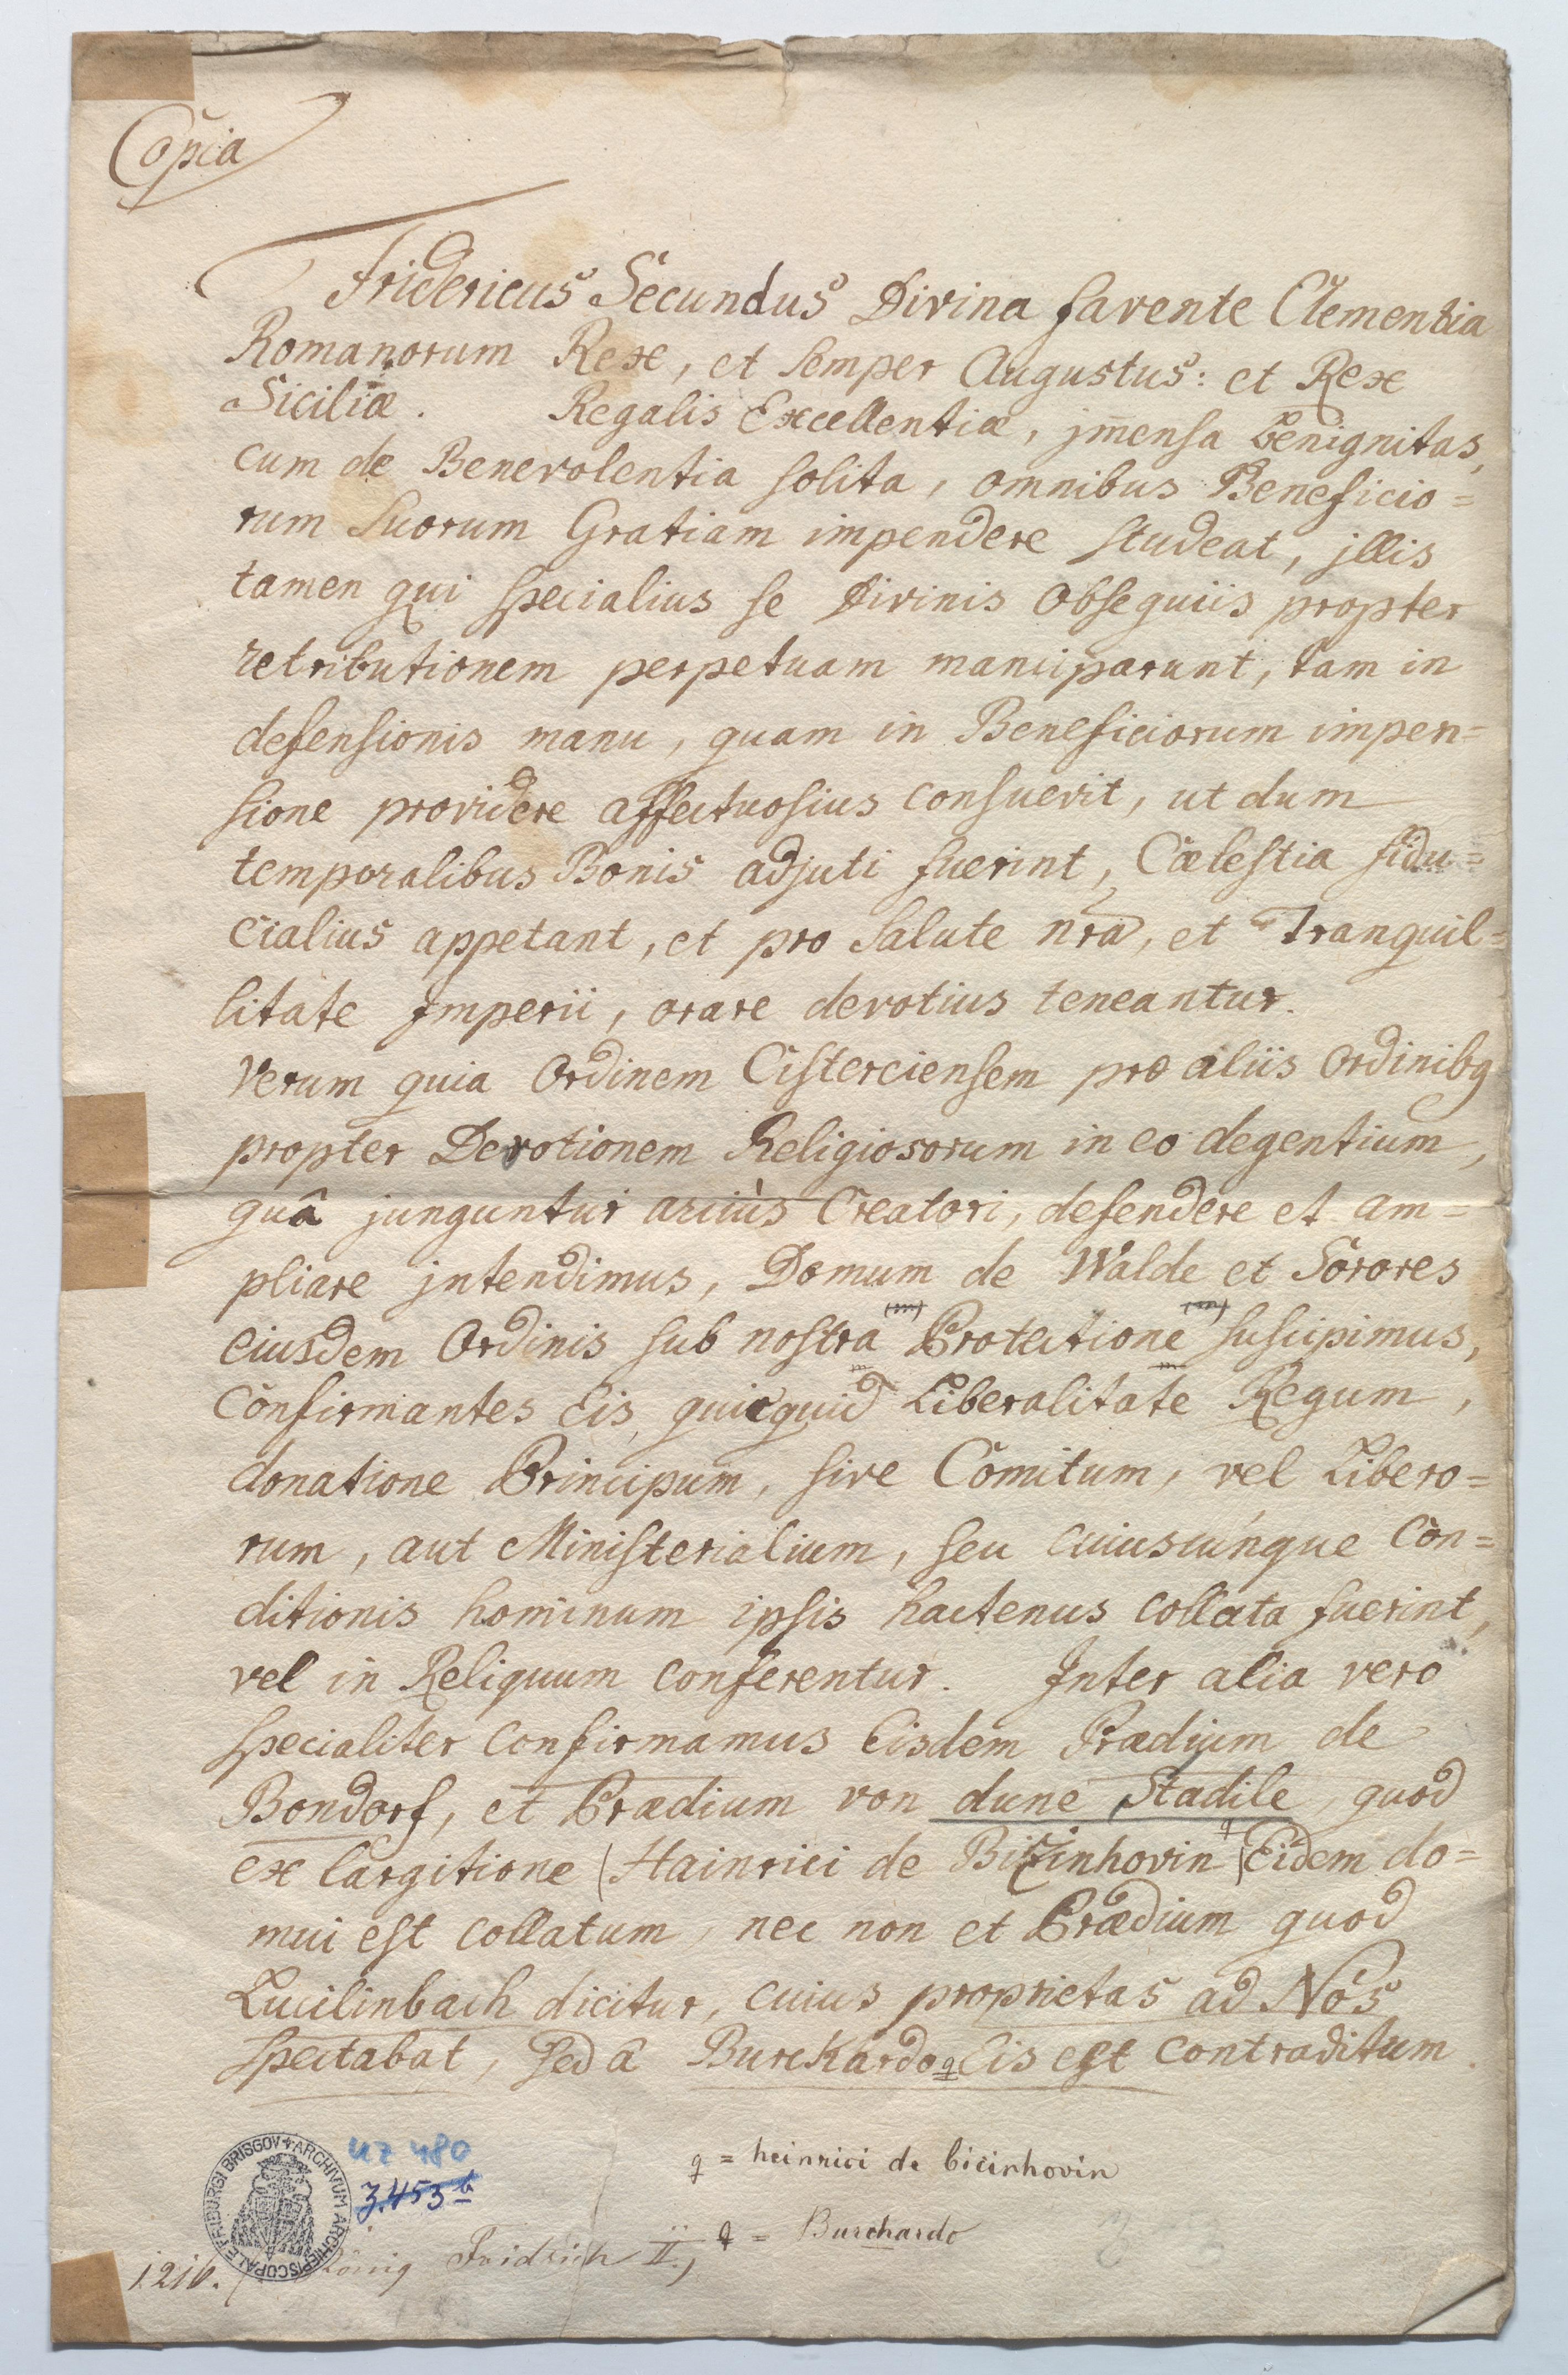 Copia
Fridericus Secundus Divina favente Clementia
Romanorum Rex, et semper Augustus: et Rex
Siciliæ. Regalis Excellentiæ, jm̄ensa Benignitas,
cum de Benevolentia solita, omnibus Beneficio=
rum suorum Gratiam impendere studeat, jllis
tamen qui specialius se Divinis obsequiis propter
retributionem perpetuam manciparunt, tam in
defensionis manu, quam in Beneficiorum impen=
sione providere affectuosius consuevit, ut dum
temporalibus Bonis adjuti fuerint, Cælestia fidu=
cialius appetant, et pro salute nr̄a, et Tranquil=
litate Jmperii, orare devotius teneantur.
Verum quia Ordinem Cisterciensem præ aliis ordinibq
propter Devotionem Religiosorum in eo degentium,
quâ junguntur arciùs Creatori, defendere et am=
pliare jntendimus, Domum de Walde et Sorores
eiusdem Ordinis sub nostra (m) Protectione (m) suscipimus,
confirmantes Eis, quicquid Liberalitate Regum,
donatione Principum, sive Comitum, vel Libero=
rum, aut Ministerialium, seu cuiuscúnque Con=
ditionis hominum ipsis hactenus collata fuerint,
vel in Reliquum conferentur. Jnter alia vero
specialiter confirmamus Eisdem Prædium de
Bondorf, et Prædium von dune Stadile, quod
ex largitione (Hainrici de Bizinhovin) q Eidem do=
mui est collatum, nec non et Prædium quod
Lucilinbach dicitur, cuius proprietas ad Nós
spectabat, sed â Burckardo q Eis est contraditum.
q = heinrici de bicinhovin
q = Burchardo
UZ 480
3.453 b
ARCHIVUM ARCHIEPISCOPALE FRIBURGI BRISGOV
1216. König Fridrich II.,